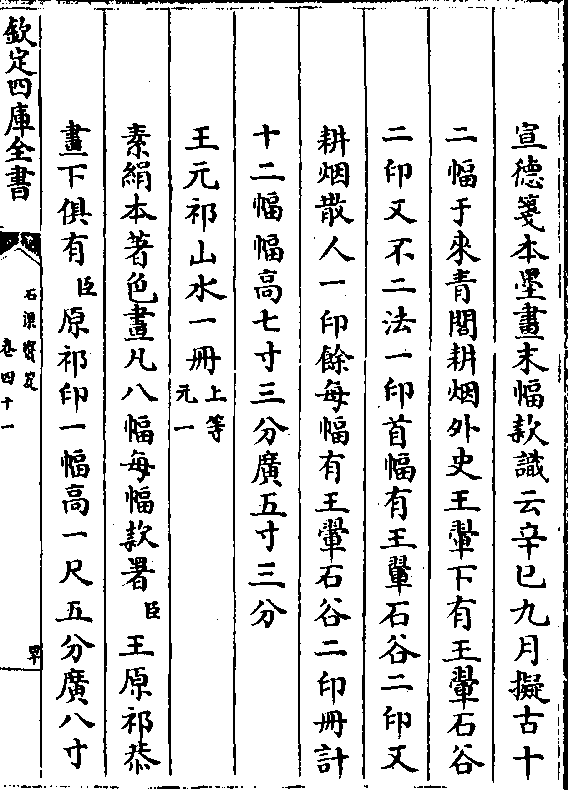 宣德箋本墨畫末幅款識云辛巳九月擬古十
二幅于來青閣耕烟外史王翬下有王翬石谷
二印又不二法一印首幅有王翬石谷二印又
耕烟散人一印餘每幅有王翬石谷二印冊計
十二幅幅高七寸三分廣五寸三分
王元祁山水一冊上等元一
素絹本著色畫凡八幅每幅款署臣王原祁恭
畫下俱有臣原祁印一幅高一尺五分廣八寸
欽定四庫全書
石渠寶笈
卷四十一